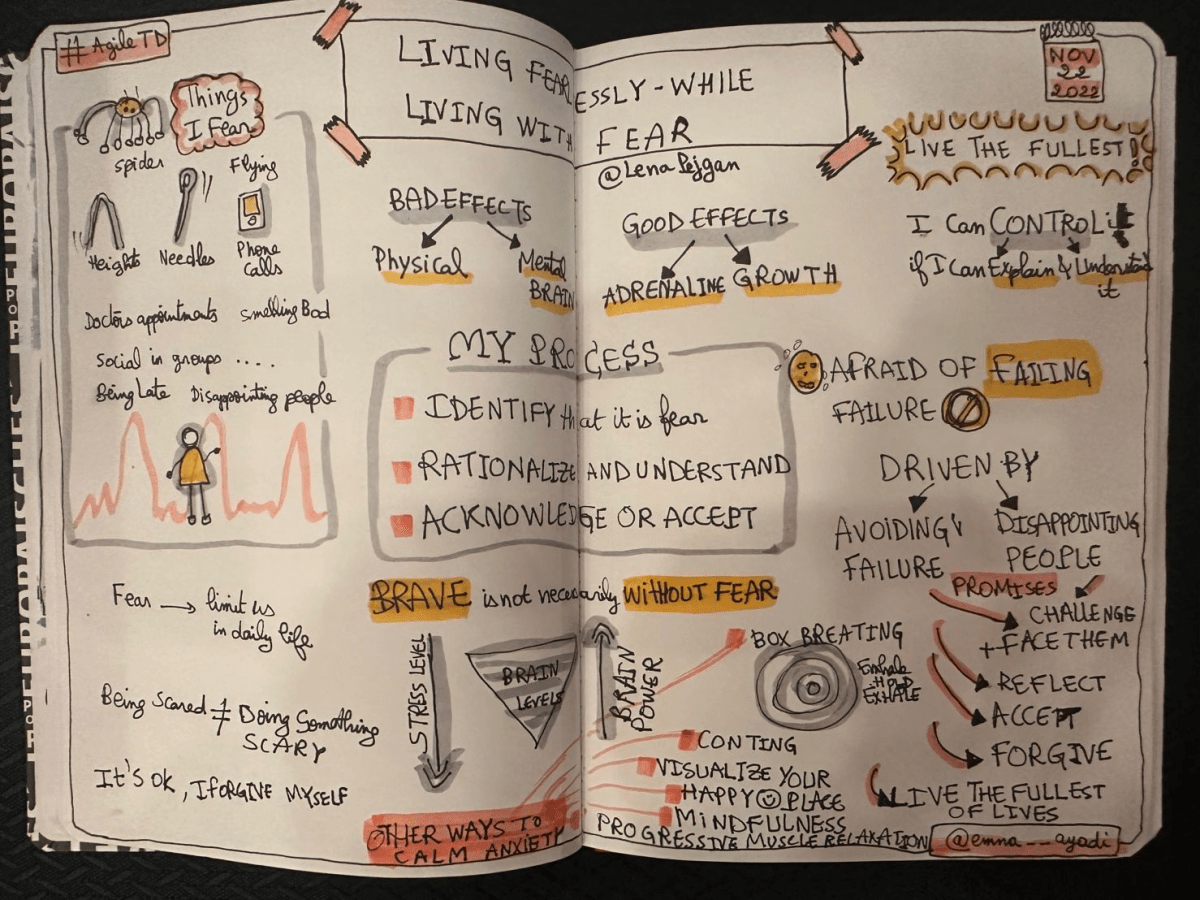 # AgileTD
LIVING FEARLESSLY - WHILE
LIVING WITH FEAR
@Lena Pejgan
NOV
22
2022
Things
I Fear
spider
Flying
Heights
Needles
Phone
Calls
Doctors appointments
smelling Bad
Social in groups ....
Being Late
Disappointing people
Fear → limit us
in daily life
Being Scared ≠ Doing Something
SCARY
It's ok, I FORGIVE MYSELF
BAD EFFECTS
Physical
Mental
BRAIN
GOOD EFFECTS
ADRENALINE
GROWTH
MY PROCESS
IDENTIFY that it is fear
RATIONALIZE AND UNDERSTAND
ACKNOWLEDGE OR ACCEPT
BRAVE is not necessarily WITHOUT FEAR
STRESS LEVEL
BRAIN
LEVELS
BRAIN
POWER
OTHER WAYS TO
CALM ANXIETY
BOX BREATING
HOLD
EXHALE
CONTING
VISUALIZE YOUR
HAPPY PLACE
MINDFULNESS
PROGRESSIVE MUSCLE RELAXATION
LIVE THE FULLEST!
I Can CONTROL it
if I Can Explain & Understand
it
AFRAID OF FAILING
FAILURE
DRIVEN BY
AVOIDING
FAILURE
DISAPPOINTING
PEOPLE
PROMISES
CHALLENGE
+ FACE THEM
REFLECT
ACCEPT
FORGIVE
LIVE THE FULLEST
OF LIVES
@emna__ayadi